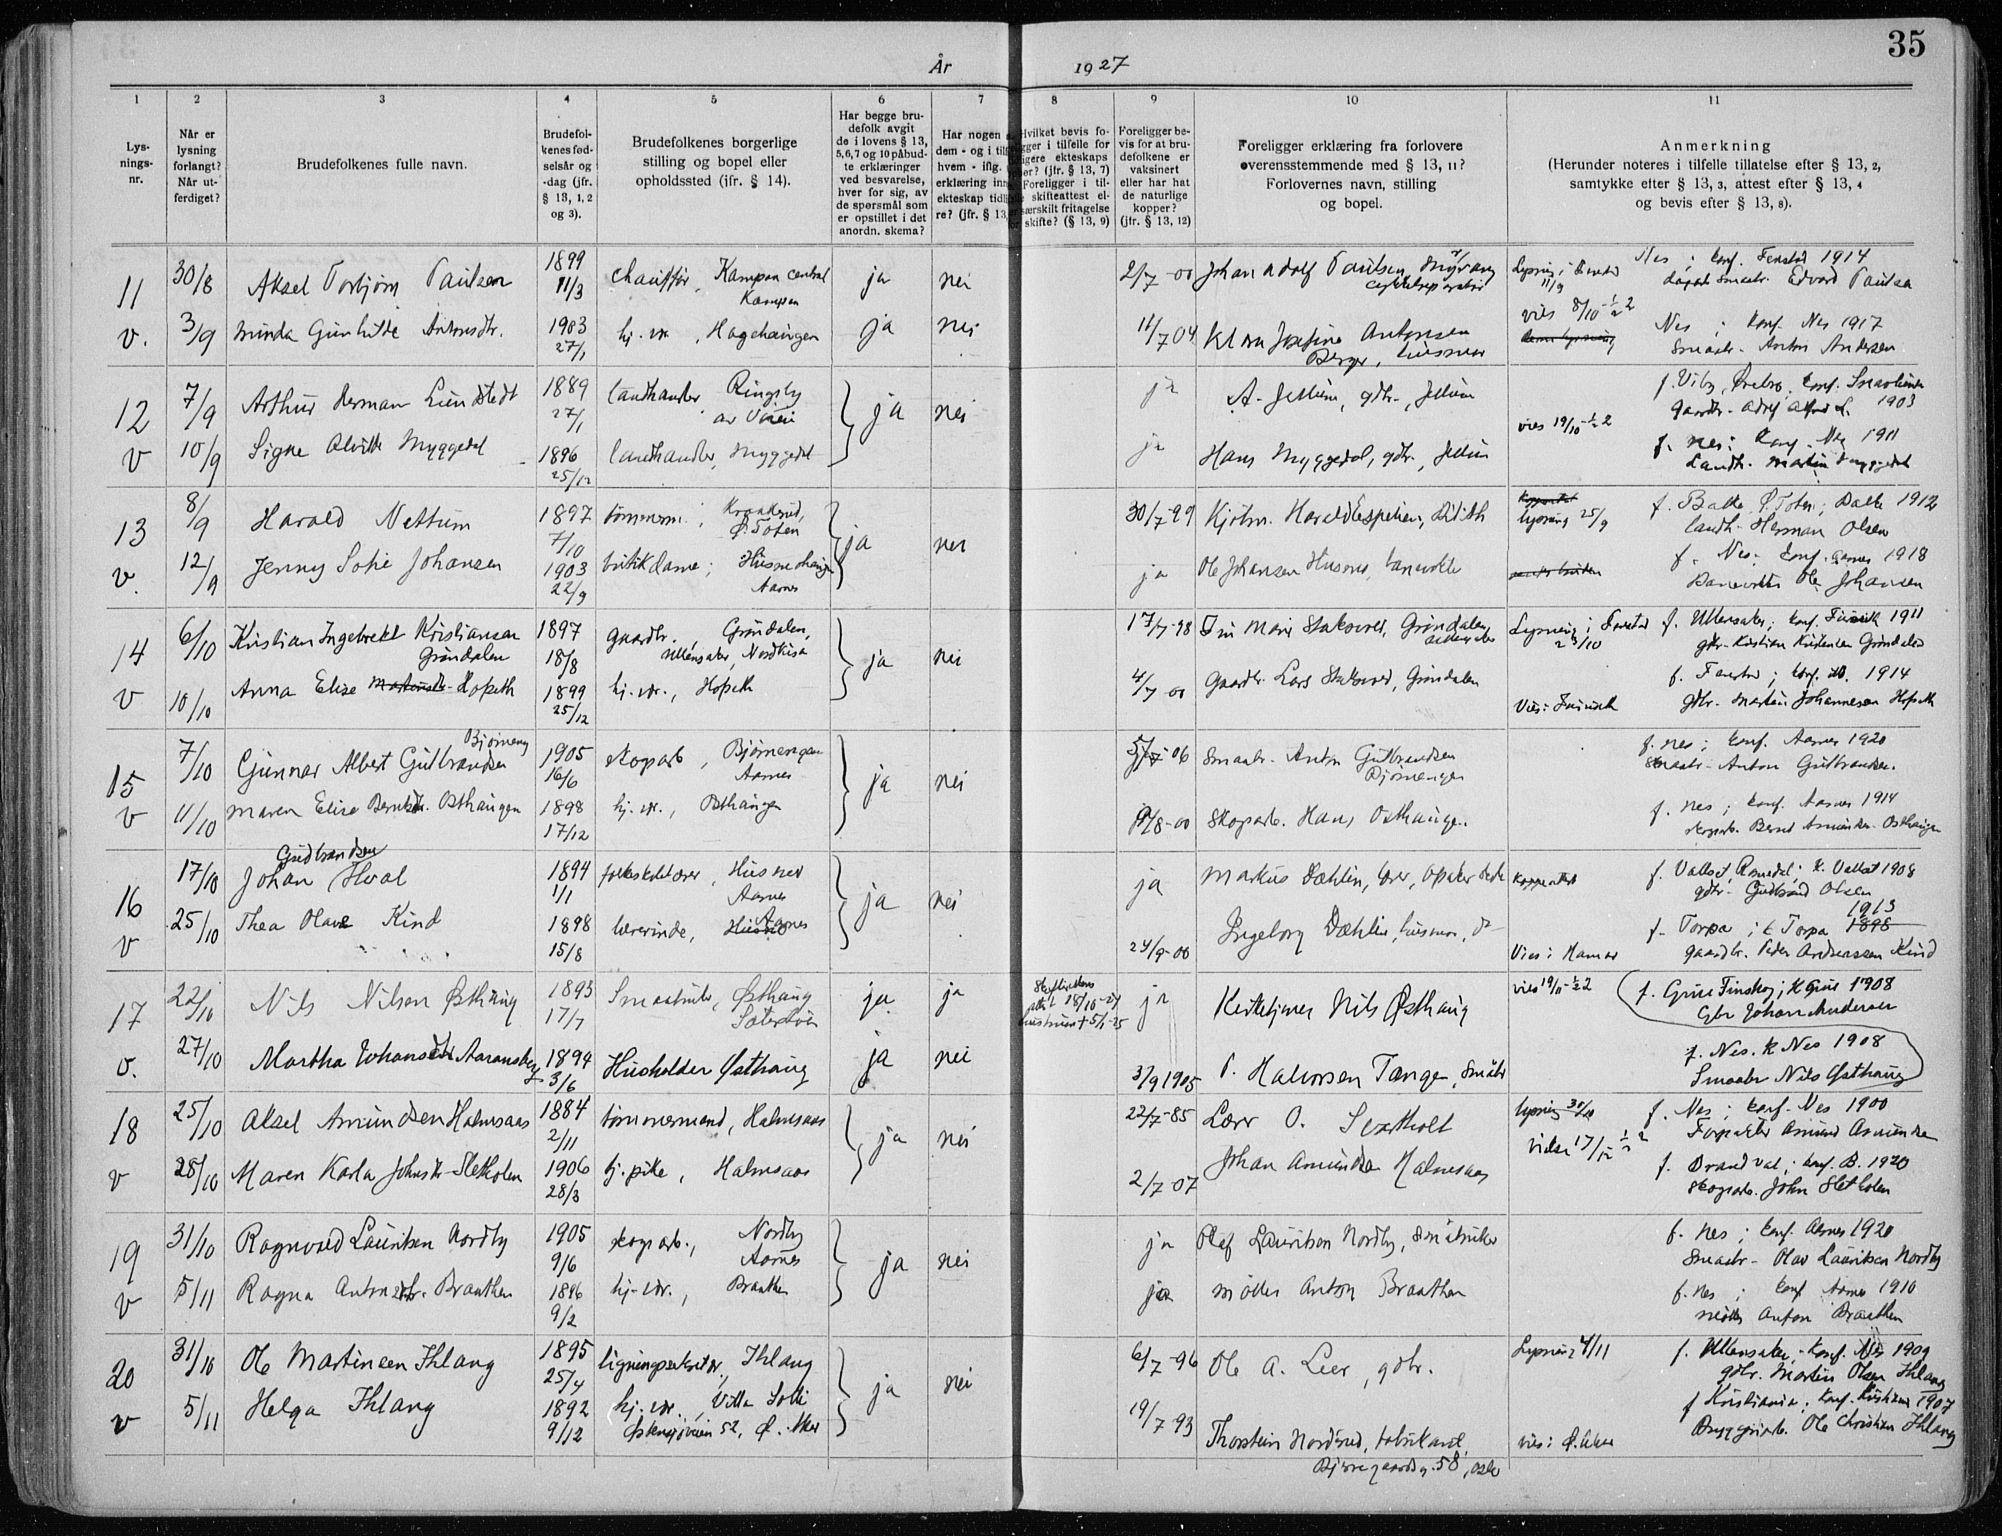 35
År 1927
1
2
3
4
5
6
7
8
9
10
11
Lys-
nings-
nr.
Når er
lysning
forlangt?
Når ut-
ferdiget?
Brudefolkenes fulle navn.
Brudefol-
kenes fød-
selsår og
-dag (jfr.
§ 13, 1, 2
og 3).
Brudefolkenes borgerlige
stilling og bopel eller
opholdssted (ifr. § 14).
Har begge bru-
defolk avgit
de i lovens § 13,
5, 6, 7 og 10 påbud-
te erklæringer
ved besvarelse,
hver for sig, av
de spørsmål som
er opstillet i det
anordn. skema?
Har nogen a
dem - og i tilf
hvem - iflg.
erklæring inn
ekteskap tidl
re? (jfr. § 13,
Hvilket bevis fo-
gger i tilfelle for
igere ekteskaps
er? (jfr. § 13, 7)
Foreligger i til-
skifteattest el-
særskilt fritagelse
skifte? (§ 13, 9)
Foreligger be-
vis for at bru-
defolkene er
vaksinert
eller har hat
de naturlige
kopper?
(jfr. § 13, 12)
Foreligger erklæring fra forlovere
overensstemmende med § 13, 11?
Forlovernes navn, stilling
og bopel.
Anmerkning
(Herunder noteres i tilfelle tillatelse efter § 13, 2,
samtykke efter § 13, 3, attest efter § 13, 4
og bevis efter § 13, 8).
11
v.
30/8
3/9
Aksel Torbjørn Paulsen
Minda Gunhilde Antonsdtr.
1899
11/3
1903
27/1
Chauffør, Kampen Central
Kampen
hj. vr., Hagehaugen
ja
ja
nei
nei
2/7-00
11/7 04
Johan Adolf Paulsen, Myrvang
Klara Josefine Antonsen
Berger, husmor
Lysning i Fenstad
11/9
vies 8/10 - 1/2 2
Nes ; konf. Fenstad 1914
Smaabr. Edvard Paulsen
Nes ; konf. Nes 1917
Smaabr. Anton Andersen
12
v
7/9
10/9
Arthur Herman Lundstedt
Signe Alvilde Myggedal
1889
27/1
1896
25/12
landhandler Ringsby
landhandler, Myggedal
ja
nei
ja
ja
A. Jellum, gdbr., Jellum
Hans Myggedal, gdbr., Jellum
vies 19/10 - 1/2 2
f. Viby, Örebro, konf.
1903
f. Nes; konf. Nes 1911
Landh. Martin Myggedal
13
v.
8/9
12/9
Harald Nettum
Jenny Sofie Johansen
1897
7/10
1903
22/9
tømmerm.; Kraakerud,
Ø. Toten
butikdame; Husmohaugen
Aarnes
ja
nei
30/7-99
ja
Kjøbm. Harald Espelien,
Ole Johansen Husmo, banevokter
lysning 25/9
f. Balke, Ø. Toten; Balke 1912
landh. Herman Olsen
f. Nes; konf. Aarnes 1918
Banevokter Ole Johansen
14
v
6/10
10/10
Kristian Ingebrekt Kristiansen
Grøndalen
Anna Elise Hopseth
1897
18/8
1899
25/12
gaardbr. Grøndalen,
Ullensaker, Nordkisa
hj. vr., Hopseth
ja
nei
17/7-98
4/7-00
Fru Marie Stakserud, Grøndalen
Gaardbr. Lars Stakserud, Grøndalen
Lysning i Fenstad
23/10
Vies: Furuseth
f. Ullensaker; konf. Furuseth 1911
gbr. Kristian Kristensen Grøndalen
f. Fenstad; konf. do. 1914
gbr. Martin Johannesen Hopseth
15
v
7/10
11/10
Bjørneng
Gunnar Albert Gulbrandsen
Maren Elise Berntsdtr. Osthaugen
1905
16/6
1898
17/12
skogarb., Bjørnengen
Aarnes
hj. vr., Osthaugen
ja
nei
5/7-06
/8-00
Smaabr. Anton Gulbrandsen
Bjørnengen
Skogarb. Hans Osthaugen.
f. Nes; konf. Aarnes 1920
Smaabr. Anton Gulbrandsen.
f. Nes; konf. Aarnes 1914
skogarb. Bernt Amundsen Osthaugen
16
v
17/10
25/10
Gudbrandsen
Johan Hval
Thea Olave Kind
1894
1/1
1898
15/8
folkeskolelærer, Husmo
Aarnes
lærerinde, Aarnes
ja
nei
ja
24/9-00
Markus Dæhlin, lærer, Opaker
Ingeborg Dæhlin, husmor, do
Koppeattest
Vies: Hamar
f. Vallset, Romedal; k. Vallset 1908
gdbr. Gudbrand Olsen
1913
f. Torpa; k Torpa 1898
gaardbr. Peder Andreassen Kind
17
v.
22/10
27/10
Nils Nilsen Østhaug
Martha Johansdtr Aaraneberg
1893
17/7
1894
3/6
Smaabruker, Østhaug
Husholder Østhaug
ja
ja
ja
nei
18/10-27
ja
3/9 1905
Kirketjener Nils Østhaug
P. Halvorsen Tange, Småbr
vies 19/11 - 1/2 2
f. Grue Finskog; K Grue 1908
Gbr Johan Andersen
f. Nes. K Nes 1908
Smaabr Nils Østhaug
18
v
25/10
28/10
Aksel Amundsen Halmsaas
Maren Karla Johnsdtr Sletholen
1884
2/11
1906
28/3
tømmermand, Halmsaas
hj. pike, Halmsaas
ja
nei
22/7-85
2/7-07
Lærer O. Svartholt
Johan Amundsen Halmsaas
lysning 30/10
vielse 17/12 - 1/2 2
f. Nes; konf. Nes 1900
Forpakter Amund Amundsen
f. Brandval; konf. B. 1920
skogarb. John Sletholen
19
v
31/10
5/11
Ragnvald Lauritsen Nordby
Ragna Antonsdtr. Braathen
1905
9/6
1896
9/2
skogarb., Nordby
Aarnes
hj. vr., Braathen
ja
nei
ja
ja
Olaf Lauritsen Nordby, Småbruker
møller Anton Braathen
f. Nes; konf. Aarnes 1920
Smaabr. Olav Lauritsen Nordby
f. Nes; konf Aarnes 1910
møller Anton Braathen
20
v
31/10
5/11
Ole Martinsen Ihlang
Helga Ihlang
1895
25/4
1892
9/12
ligningssekretær, Ihlang
hj. vr., Villa Solli
Østensjøveien 52, Ø. Aker
ja
nei
6/7-96
19/7-93
Ole A. Leer, gdbr.
Thorstein Nordrud, fabrikant,
Bjerregaardsg. 58, Oslo
Lysning 4/11
vies: Ø. Aker
f. Ullensaker, konf. Nes 1909
gdbr. Martin Olsen Ihlang
f Kristiania, konf. Kristiania 1907
Bryggeriarb. Ole Christian Ihlang